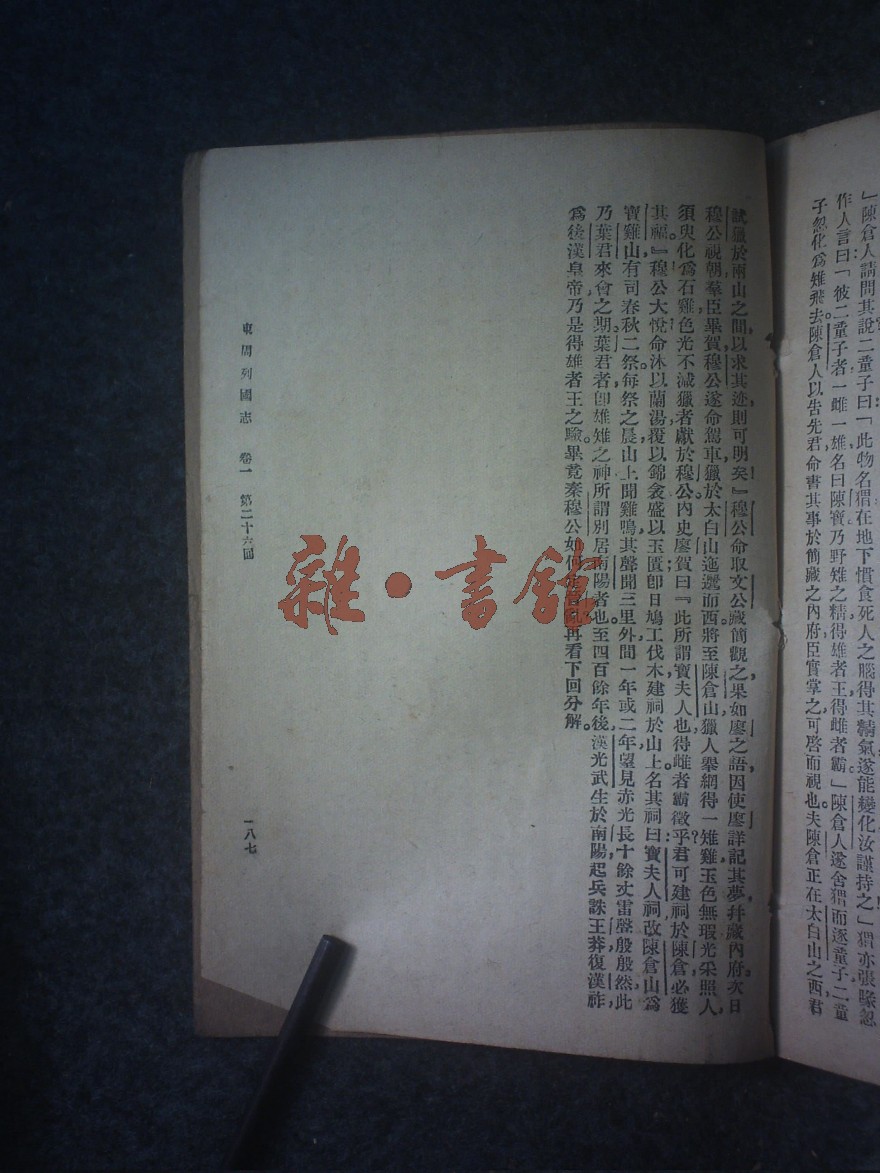 」陳倉人請問其說二童子曰「此物名猬在地下慣食死人之腦得其精氣遂能變化汝謹持之」猬亦張喙忽
作人言曰「彼二童子者一雌一雄名曰陳寶乃野雉之精得雄者王得雌者霸」陳倉人遂舍猬而逐童子二童
子忽化爲雉飛去陳倉人以吿先君命書其事於簡藏之內府臣實掌之可啓而視也夫陳倉正在太白山之西君
試獵於兩山之間以求其迹則可明矣』穆公命取文公藏簡觀之果如廖之語因使廖詳記其夢幷藏內府次日
穆公視朝羣臣畢賀穆公遂命駕車獵於太白山迤邐而西將至陳倉山獵人舉網得一雉雞玉色無瑕光采照人
須臾化爲石雞色光不減獵者獻於穆公內史廖賀曰『此所謂寶夫人也得雌者霸徵乎?君可建祠於陳倉必獲
其福』穆公大悅命沐以蘭湯覆以錦衾盛以玉匱卽日鳩工伐木建祠於山上名其祠曰寶夫人祠改陳倉山爲
寶雞山有司春秋二祭每祭之晨山上聞雞鳴其聲聞三里外間一年或二年望見赤光長十餘丈雷聲殷殷然此
乃葉君來會之期葉君者卽雄雉之神所謂別居南陽者也至四百餘年後漢光武生於南陽起兵誅王莽復漢祚
爲後漢皇帝乃是得雄者王之驗畢竟秦穆公如何定晉亂再看下回分解。
東周列國志 卷一 第二十六回
一八七
雜·書館